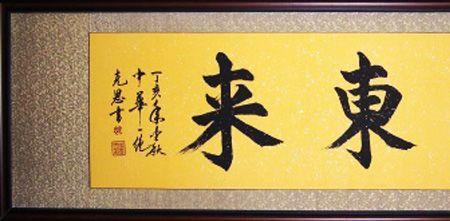 東来
丁亥年秋
中華一绝
克恩書